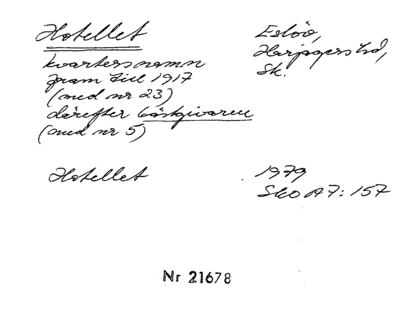 Hotellet
Eslöv,
Harjagers hd,
Sk.
kvartersnamn
fram till 1917
(med nr 23)
därefter Gästgivaren
(med nr 5)
Hotellet
1979
Sko A7: 157
Nr 21678